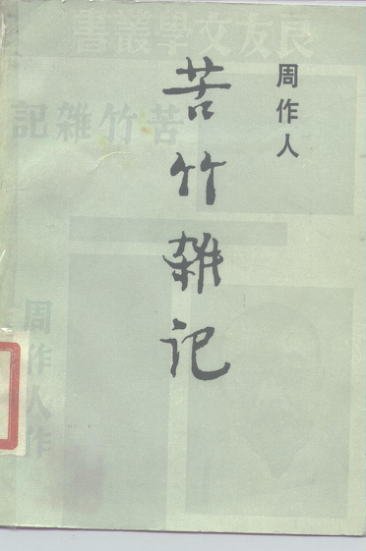 周作人
苦竹雜记
良友文學叢書
苦竹雜記
周作人作